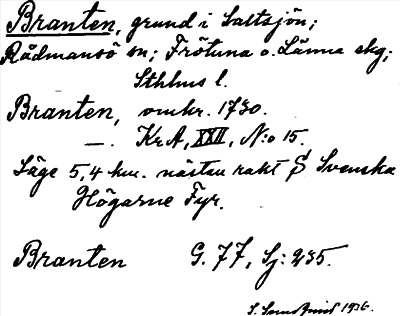 Branten, grund i Saltsjön;
Rådmansö sn; Frötuna o. Länna skg;
Sthlms l.
Branten, omkr. 1730.
—. Kr.A, XXII, N:o 15.
Läge 5,4 km. nästan rakt S Svenska
Högarne Fyr.
Branten G. 77, Sj: 235.
1936.